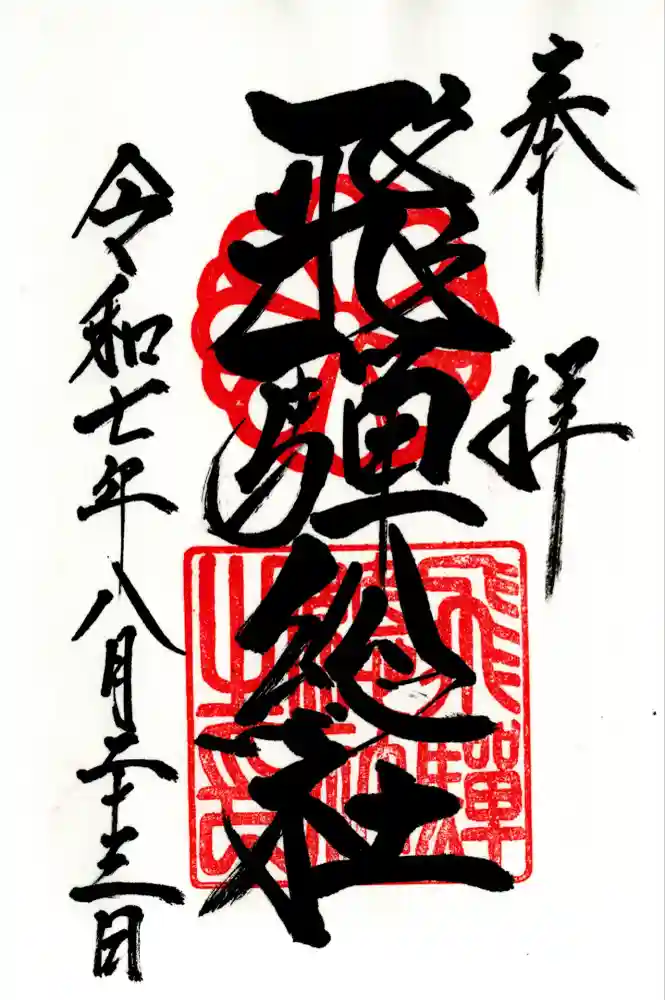 奉拝
飛騨総社
飛騨総社之印
令和七年八月二十三日